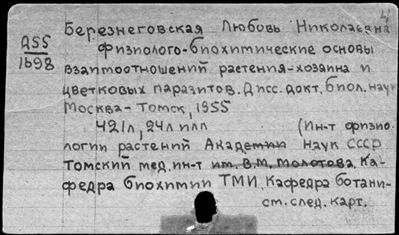 4
Березнеговская Любовь Николаевна
Д55
1698
Физиолого-биохимические основы
взаимоотношений растения-хозяина и
цветковых паразитов. Дисс. докт. биол. наук
Москва - Томск, 1955
421л, 24л илл (Ин-т физио-
логии растений Академии наук СССР
Томский мед. ин-т им. В.М. Молотова. Ка-
федра биохимии ТМИ. Кафедра ботани-
см. след. карт.